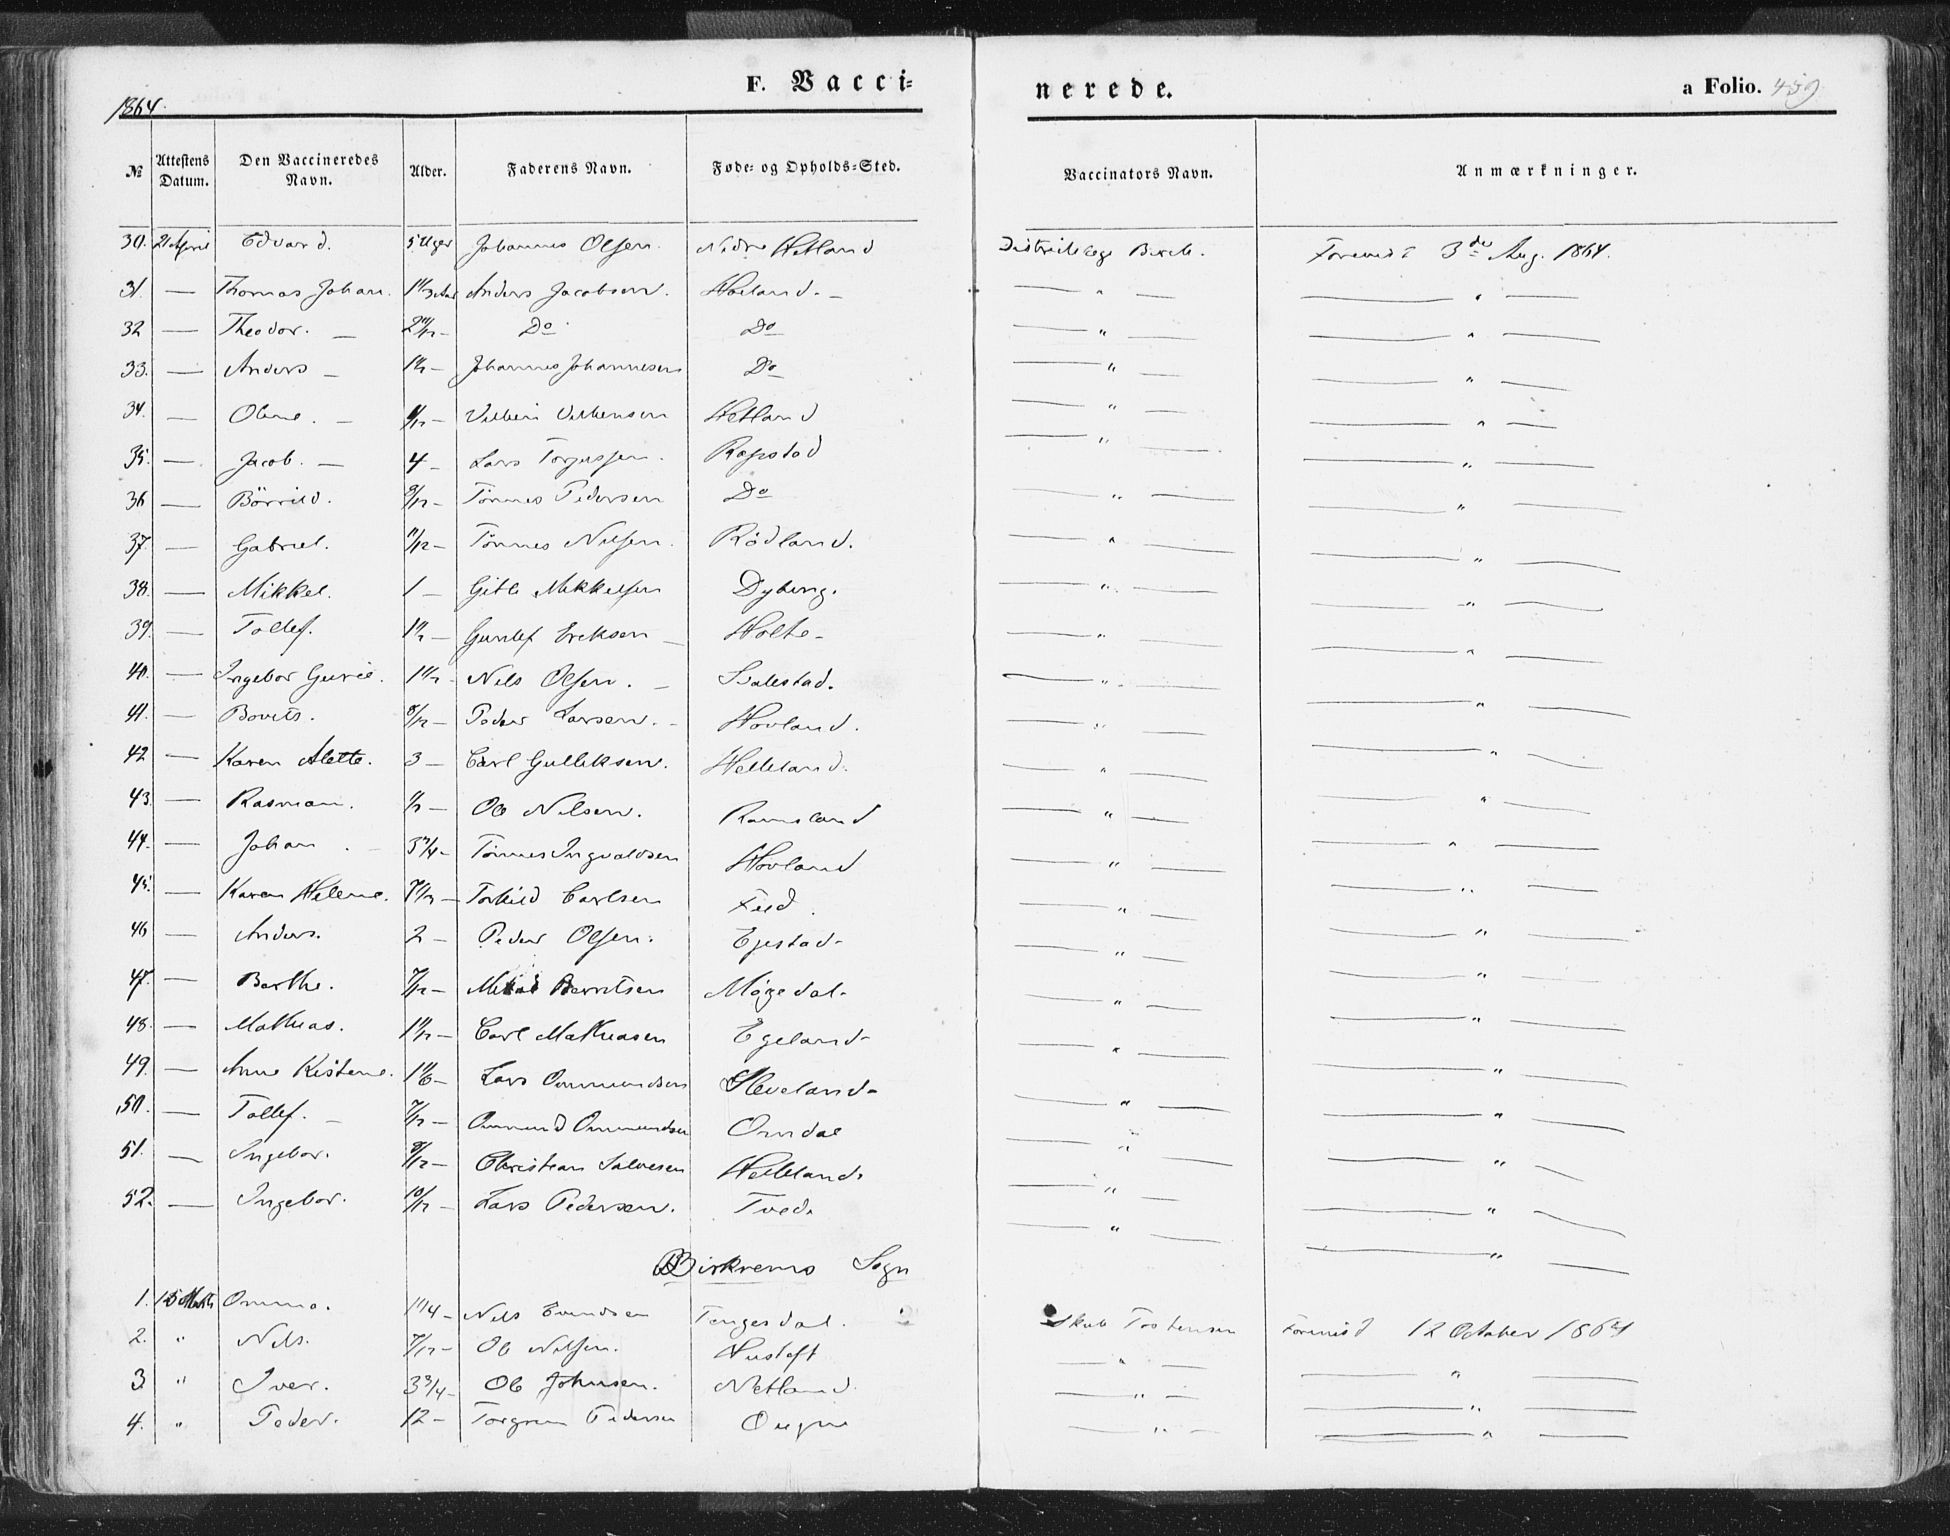 1864.
F. Vacci-
nerede.
a Folio. 459
№
Attestens Datum.
Den Vaccineredes Navn.
Alder.
Faderens Navn.
Føde- og Opholds-Sted.
Vaccinators Navn.
Anmærkninger.
30. 21 April Edvard. 5 Uger Johannes Olsen. Nedre Hetland Distriktslæge 3die Aug. 1864.
31. — Thomas Johan. Anders Jacobsen. Hovland. — " — — " —
32 — Theodor. — 2 11/12 — Do Do — " — — " —
33. — Anders — 1 1/2 — Johannes Johannesen Do — " — — " —
34. — Oline. — Hetland — " — — " —
35. — Jacob. — 4 — Lars Torgersen. Rapstad — " — — " —
36 — Börrild. 9/12 — Tönnes Pedersen Do — " — — " —
37. — Gabriel. 11/12 — Tönnes Nilsen. Rödland. — " — — " —
38. — Mikkel. 1 — Gitle Mikkelsen Dybing. — " — — " —
39. — Tollef. 1 1/2 — Gunlef Ericksen — Holte — — " — — " —
40. — Ingebor Gurie. 1 1/2 — Nils Olsen. — — " — — " —
41. — 8/12 — Peder Larsen. — Hovland. — " — — " —
42 — Karen Alette. 3 — Carl Gulliksen. Helleland. — " — — " —
43. — Rasman. 1/2 — Ole Nilsen. Ramsland — " — — " —
44. — Johan. — 3 3/4 — Tönnes Ingvaldsen Hovland — " — — " —
45. — Karen Helene. 7 1/2 — Torkild Carlsen — " — — " —
46 — Anders. 2 — Peder Olsen. Egestad — — " — — " —
47. — Berthe. 7/12 — Mikal Berntsen Mögedal — — " — — " —
48. — Mathias. 1 1/2 — Carl Mathiasen Egeland — — " — — " —
49. — Anne Kistene. 1 1/6 — Lars Ommundsen Eeveland — — " — — " —
50. — Tollef. — 7/12 — Ommund Ommundsen Omdal — " — — " —
51. — Ingebor. 9/12 — Christian Salvesen Helleland. — " — — " —
52. — Ingebor. 10/12 — Lars Pedersen. Tved. — " — — " —
Birkrems Sogn
1. 15 Omma. 1 1/4 — Nils Evendsen Tengesdal. Tostensen 12 October 1864
2. " Nils. 7/12 — Ole Nilsen. Hustoft — " — — " —
3. " Iver. 3 3/4 — Ole Johnsen. Netland. — " — — " —
4. " Peder. 12 — Torgrim Pedersen — " — — " —